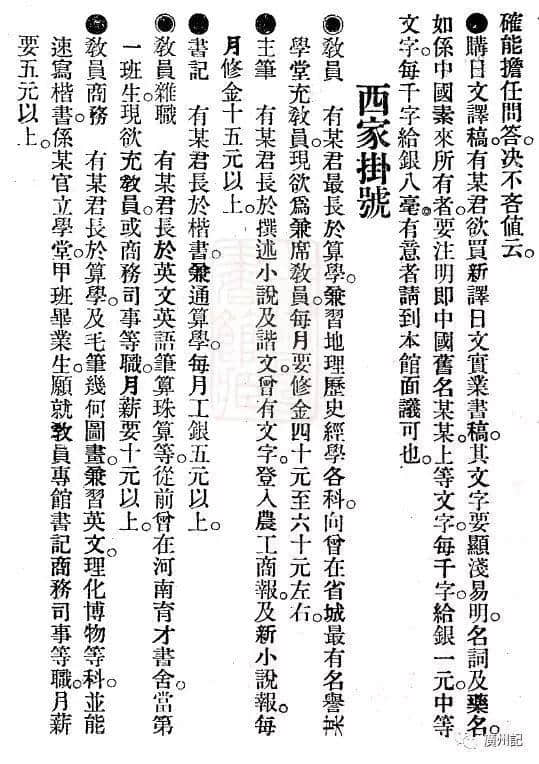 確能擔任問答。決不吝值云。
●購日文譯稿。有某君欲買新譯日文實業書稿。其文字要顯淺易明。名詞及藥名。
如係中國素來所有者。要注明即中國舊名某某。上等文字。每千字給銀一元。中等
文字。每千字給銀八毫。有意者請到本館面議可也。
西家掛號
◉教員 有某君最長於算學。兼習地理歷史經學各科。向曾在省城最有名譽某
學堂充教員。現欲爲兼席教員。每月要修金四十元至六十元左右。
●主筆 有某君長於撰述小說及諧文。曾有文字。登入農工商報。及新小說報。每
月修金十五元以上。
●書記 有某君長於楷書。兼通算學。每月工銀五元以上。
◉教員雜職 有某君長於英文英語筆算珠算等。從前曾在河南育才書舍。當第
一班生。現欲充教員。或商務司事等職。月薪要十元以上。
●教員商務 有某君長於算學。及毛筆幾何圖畫。兼習英文。理化博物等科。並能
速寫楷書。係某官立學堂。甲班畢業生。願就教員專館書記商務司事等職。月薪
要五元以上。
廣州記